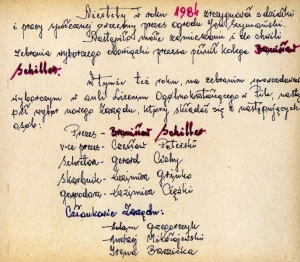 Niestety w roku 1984 zrezygnował z działki
i pracy społecznej prezes ogrodu
Następiła mała zamieszania i do chwili
zebrania wyborczego obowiązki prezesa pełnił kolega Bronisław
Schiller.
W tymże też roku, na zebraniu sprawozdawczo
wyborczym w auli Liceum Ogólnokształcącego w Pile, nastą-
pił wybór nowego Zarządu, który składał się z następujących
osób:
Prezes - Bronisław Schiller
v-ce prezes - Czesław Peterski
sekretarz - Gerard Cichy
skarbnik - Kazimierz
gospodarz - Kazimierz
Członkowie Zarządu:
Adam Gasparczyk
Andrzej Mikołajewski
Irena